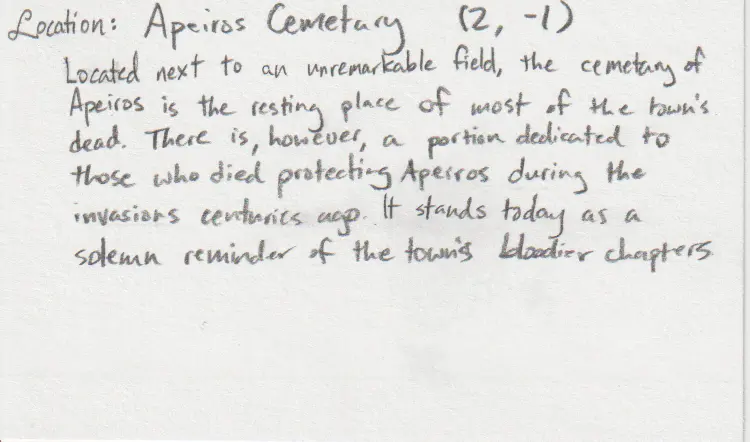 Location: Apeiros Cemetary (2, -1)
Located next to an unremarkable field, the cemetary of
Apeiros is the resting place of most of the town's
dead. There is, however, a portion dedicated to
those who died protecting Apeiros during the
invasions centuries ago. It stands today as a
solemn reminder of the town's bloodier chapters.